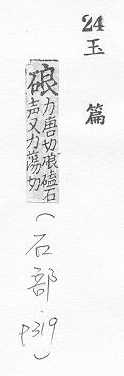 24 玉篇
硠
力唐切硠磕石
声又力蕩切
(石部, p319)